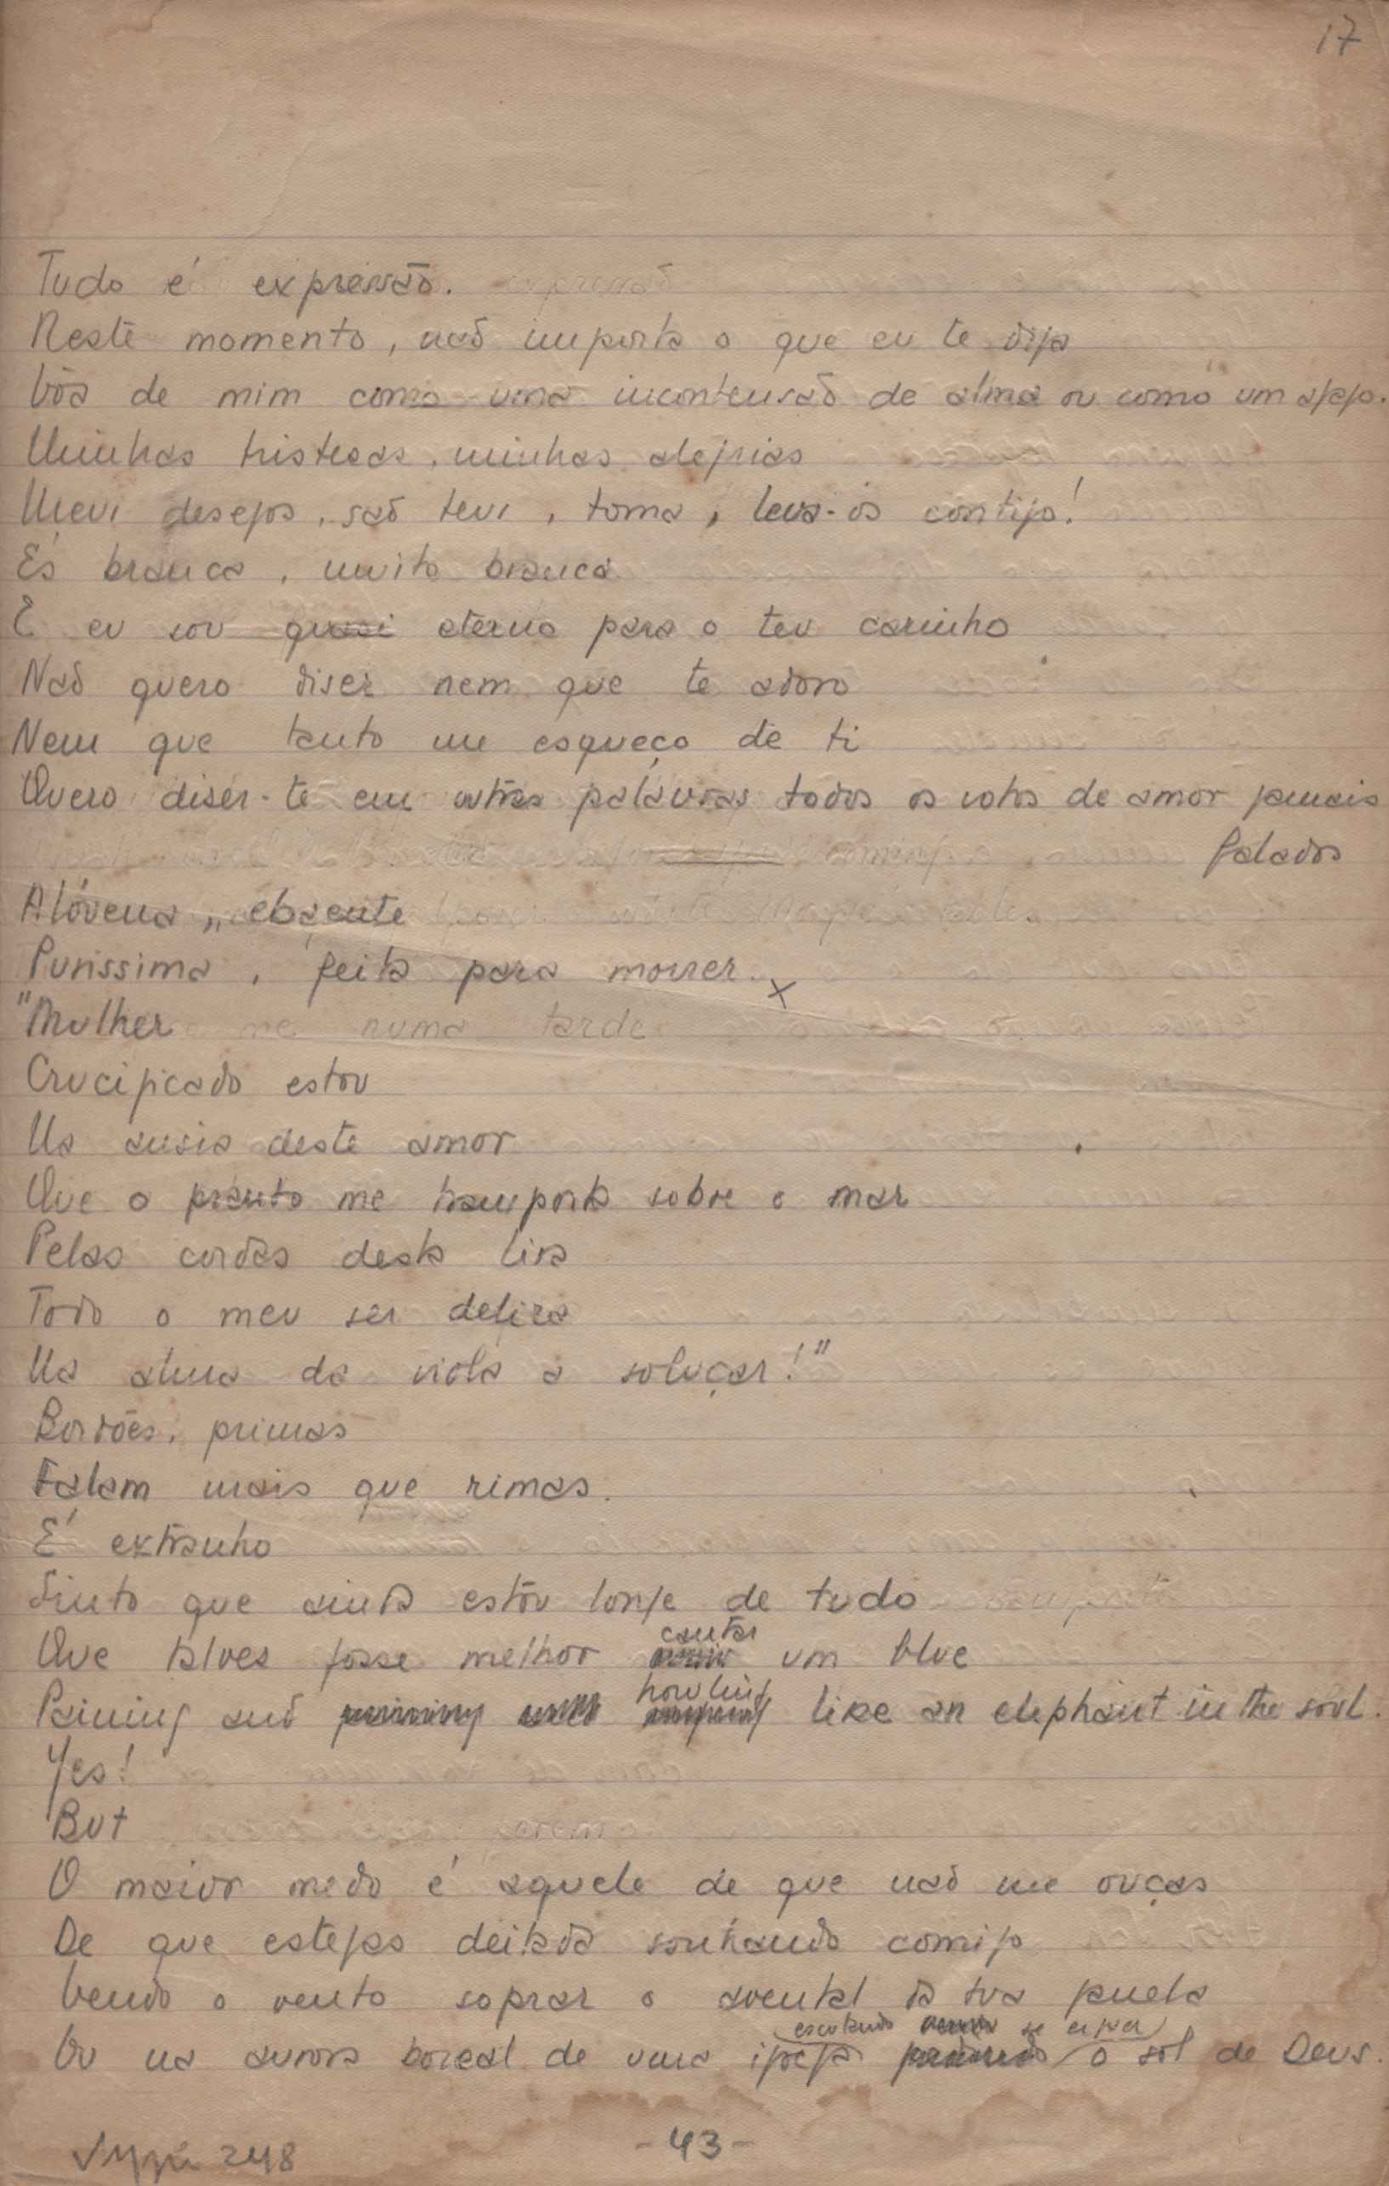 17
Tudo é expressão.
Neste momento, não importa o que eu te diga
Vôa de mim como uma incontensão de alma ou como um afago.
Minhas tristesas, minhas alegrias
Meus desejos, são teus, toma, leva-os contigo!
És branca, muito branca
E eu sou quasi eterno para o teu carinho
Não quero diser nem que te adoro
Nem que tanto me esqueço de ti
Quero diser-te em outras palavras todos os votos de amor jamais
falados
Alóvena, ebaente
Puríssima, feita para morrer. x
"Mulher
Crucificado estou
Na ansia deste amor
Que o pranto me transporta sobre o mar
Pelas cordas desta lira
Todo o meu ser delira
Na alma da viola a soluçar!"
Bordões, primas
Falam mais que rimas.
É extranho
Sinto que ainda estou longe de tudo
cantar
Que talves fosse melhor um blue
howling
Paining and like an elephant in the soul.
Yes!
But
O maior medo é aquele de que não me ouças
De que estejas deitada sonhando comigo
Vendo o vento soprar o avental da tua janela
escutando se erguer
Ou na aurora boreal de uma igreja o sol de Deus.
248
-43-